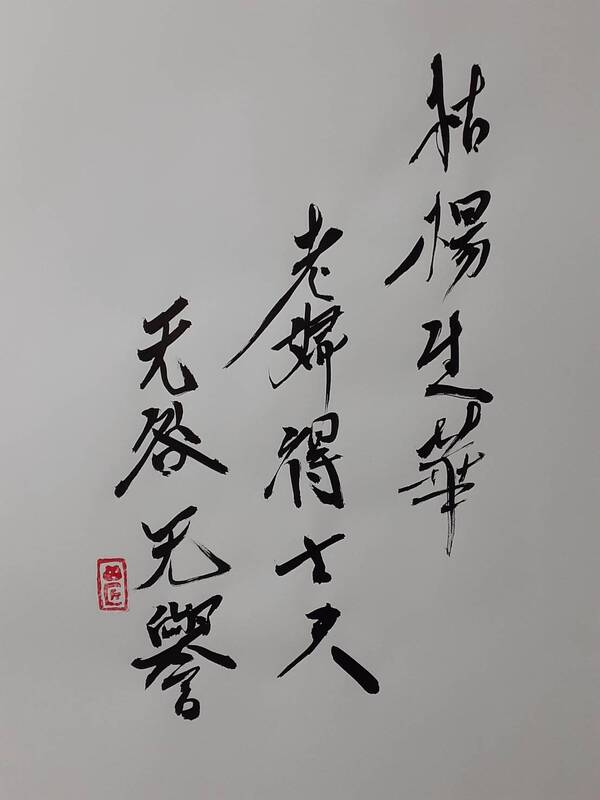 枯楊生華
老婦得士夫
无咎无譽